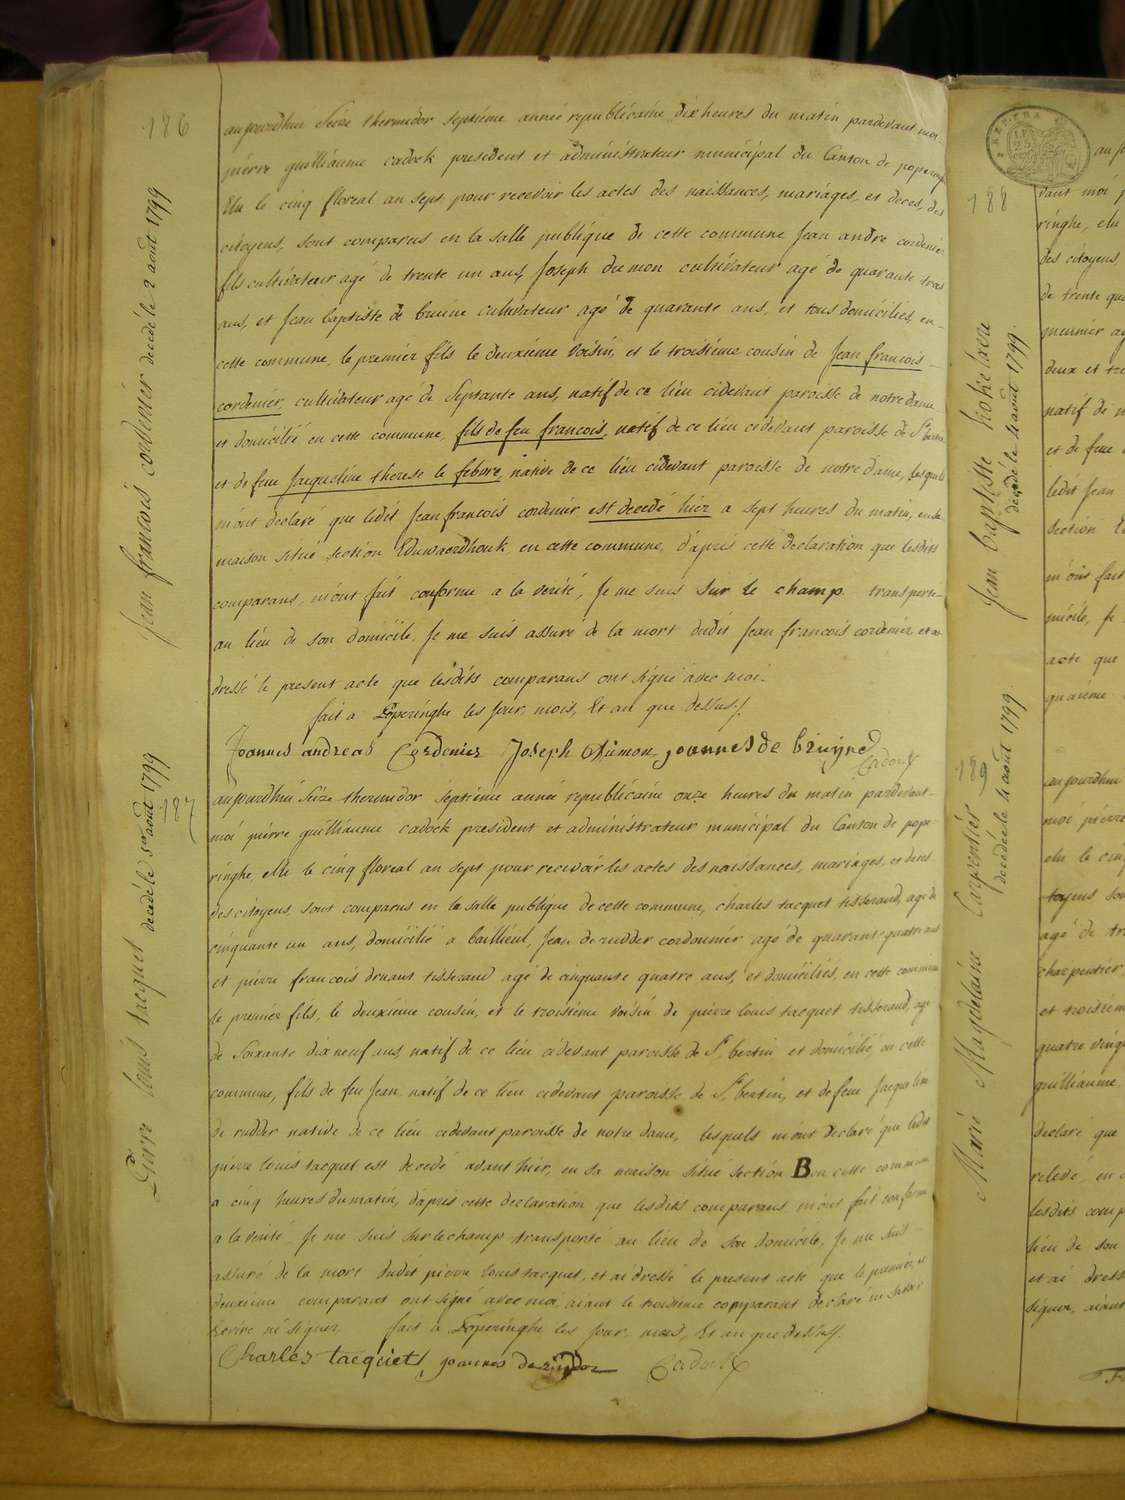 186
aujourdhui Seize thermidor septiéme année républicaine dix heures du matin pardevant moi
piérre guilliaume cadock president et administrateur municipal du Canton de poperin
Elu le cinq floreal an sept pour recevoir les actes des naissances, mariages, et deces, des
citoyens, sont comparus en la salle publique de cette commune Jean andre cordenier
fils cultivateur agé de trente un ans, Joseph dumon cultivateur agé de quarante trois
ans, et Jean baptiste de bruine cultivateur agé de quarante ans, et tous domiciliés, en
cette commune, le premier fils le deuxiéme voisin, et le troisiéme cousin de Jean francois
cordenier, cultivateur agé de Septante ans, natif de ce lieu cidevant paroisse de notre dame
et domicilié en cette commune, fils de feu francois, natif de ce lieu cidevant paroisse de St bertin
et de feue Jacqueline therese le febvre, native de ce lieu cidevant paroisse de notre dame, lesquels
m'ont declaré que ledit Jean francois cordenier est decedé hier a sept heures du matin, en sa
maison situé section Eduwaerdhouk, en cette commune, d'aprés cette declaration que lesdits
comparans, m'ont fait conforme a la verité, Je me suis sur le champ transporté
au lieu de son domicile, Je me suis assuré de la mort dudit Jean francois cordenier, et ai
dressé le present acte que lesdits comparans ont signé avec moi.
fait a Poperinghe les Jour, mois, Et an que dessus.
Joannes andreas Cordenier Joseph Dumon joannes de bruijne
Cadock
Jean francois cordenier decédé le 2 août 1799
187
aujourdhui Seize thermidor septiéme année républicaine onze heures du matin pardevant
moi piérre guilliaume cadock president et administrateur municipal du Canton de pope
ringhe, elu le cinq floreal an sept pour recevoir les actes des naissances, mariages, et deces
des citoyens, sont comparus en la salle publique de cette commune, charles tacquet tisserand, agé de
cinquante un ans, domicilié a bailliéul, Jean de rudder cordonnier agé de quarante quatre ans
et piérre francois druant tisserand agé de cinquante quatre ans, et domiciliés, en cette commune
le premier fils, le deuxiéme cousin, et le troisiéme voisin de piérre louis tacquet tisserand, agé
de Soixante dix neuf ans, natif de ce lieu cidevant paroisse de St bertin et domicilié, en cette
commune, fils de feu Jean, natif de ce lieu cidevant paroisse de St bertin, et de feue Jacqueline
de rudder native de ce lieu cidevant paroisse de notre dame, lesquels m'ont declaré que ledit
piérre louis tacquet est decedé avant hier, en sa maison situé section B en cette commune
a cinq heures du matin, d'aprés cette declaration que lesdits comparans m'ont fait conforme
a la verité Je me suis sur le champ transporté au lieu de son domicile, Je me suis
assuré de la mort dudit piérre louis tacquet, et ai dressé le present acte que le premier, et
deuxiéme comparant ont signé avec moi, aiant le troisiéme comparant declaré ne savoir
Ecrire ni signer, fait a Poperinghe les Jour, mois, Et an que dessus.
Charles tacquet, joannes de rudder Cadock
Pierre louis tacquet decédé le 3 août 1799
188
Jean baptiste
decédé le 4 août 1799
vant moi
ringhe, elu
des citoyens,
de trente
meunier
deux et
natif de
et de feue
ledit Jean
section
m'ont fait
micile, Je
acte que
189
Marie Magdelaine Carpentier
decédée le 4 août 1799
aujourdhui
moi piérre
elu le cinq
toyens
agé de
charpentier
et troisiém
quatre ving
guilliaume
declaré que
lesdits comp
lieu de son
et ai dress
signer, aiant